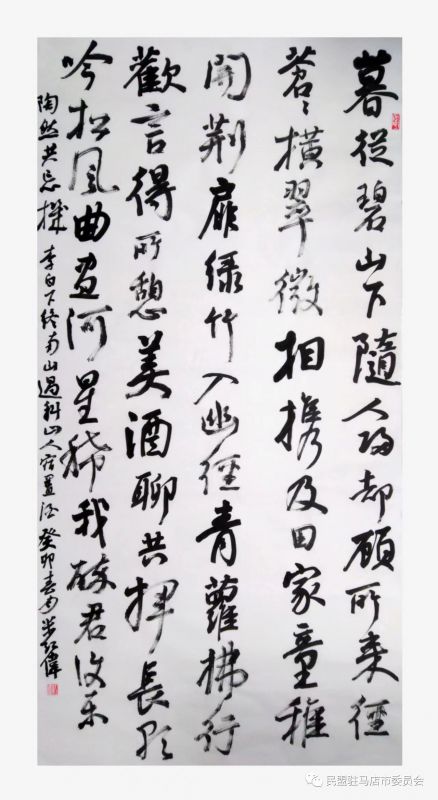 暮從碧山下隨人归却顾所来徑
蒼々橫翠微相携及田家童稚
開荆扉绿竹入幽徑青蘿拂行
歡言得所憩美酒聊共揮長歌
吟松风曲尽河星稀我醉君復乐
陶然共忘機 李白下终南山過斛山人宿置酒 癸卯春
民盟驻马店市委员会